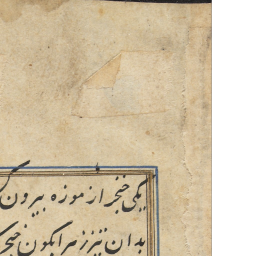 یکی خنجر از موزه بیرون
بدان تیز زهرآبگون خنجر